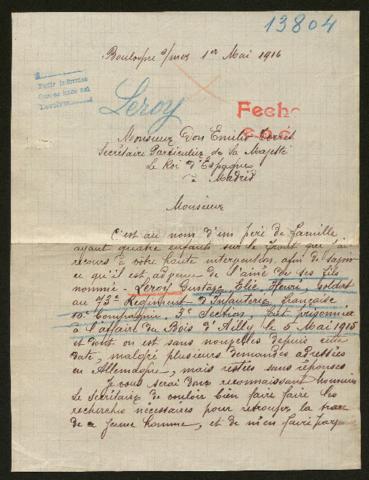 13804
Boulogne s/mer 1er Mai 1916
Leroy
Fecho
Monsieur Don Emilio
Secrétaire Particulier de Sa Majesté
Le Roi d'Espagne
à Madrid
Monsieur
C'est au nom d'un père de famille
ayant quatre enfants sur le front que j'ai
recours à votre haute intervention, afin de savoir
ce qu'il est advenu de l'aîné de ses fils
nommé - Leroy Gustave Elie Henri, soldat
au 73e Régiment d'Infanterie française
10e Compagnie - 3e Section, fait prisonnier
à l'affaire du Bois d'Ailly le 5 Mai 1915
et dont on est sans nouvelles depuis cette
date, malgré plusieurs demandes adressées
en Allemagne, mais restées sans réponses
Je vous serai donc reconnaissant Monsieur
le Secrétaire de vouloir bien faire faire les
recherches nécessaires pour retrouver la trace
de ce jeune homme, et de m'en faire